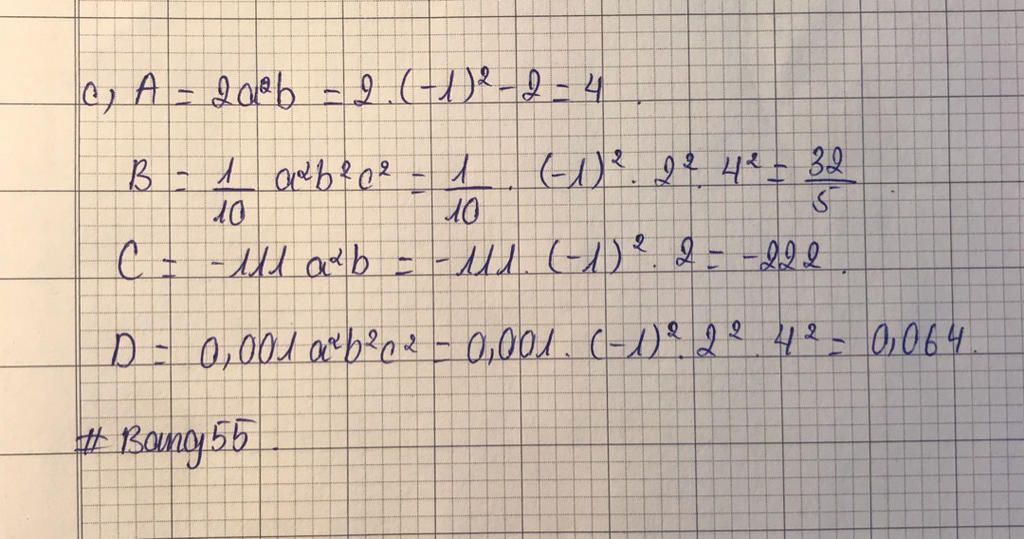 c, A = 2a²b = 2 . (-1)² - 2 = 4 .
B = 1/10 a²b²c² = 1/10 . (-1)² . 2² . 4² = 32/5
C = -111 a²b = -111 . (-1)² . 2 = -222 .
D = 0,001 a²b²c² = 0,001 . (-1)² . 2² . 4² = 0,064 .
# Bang55 .